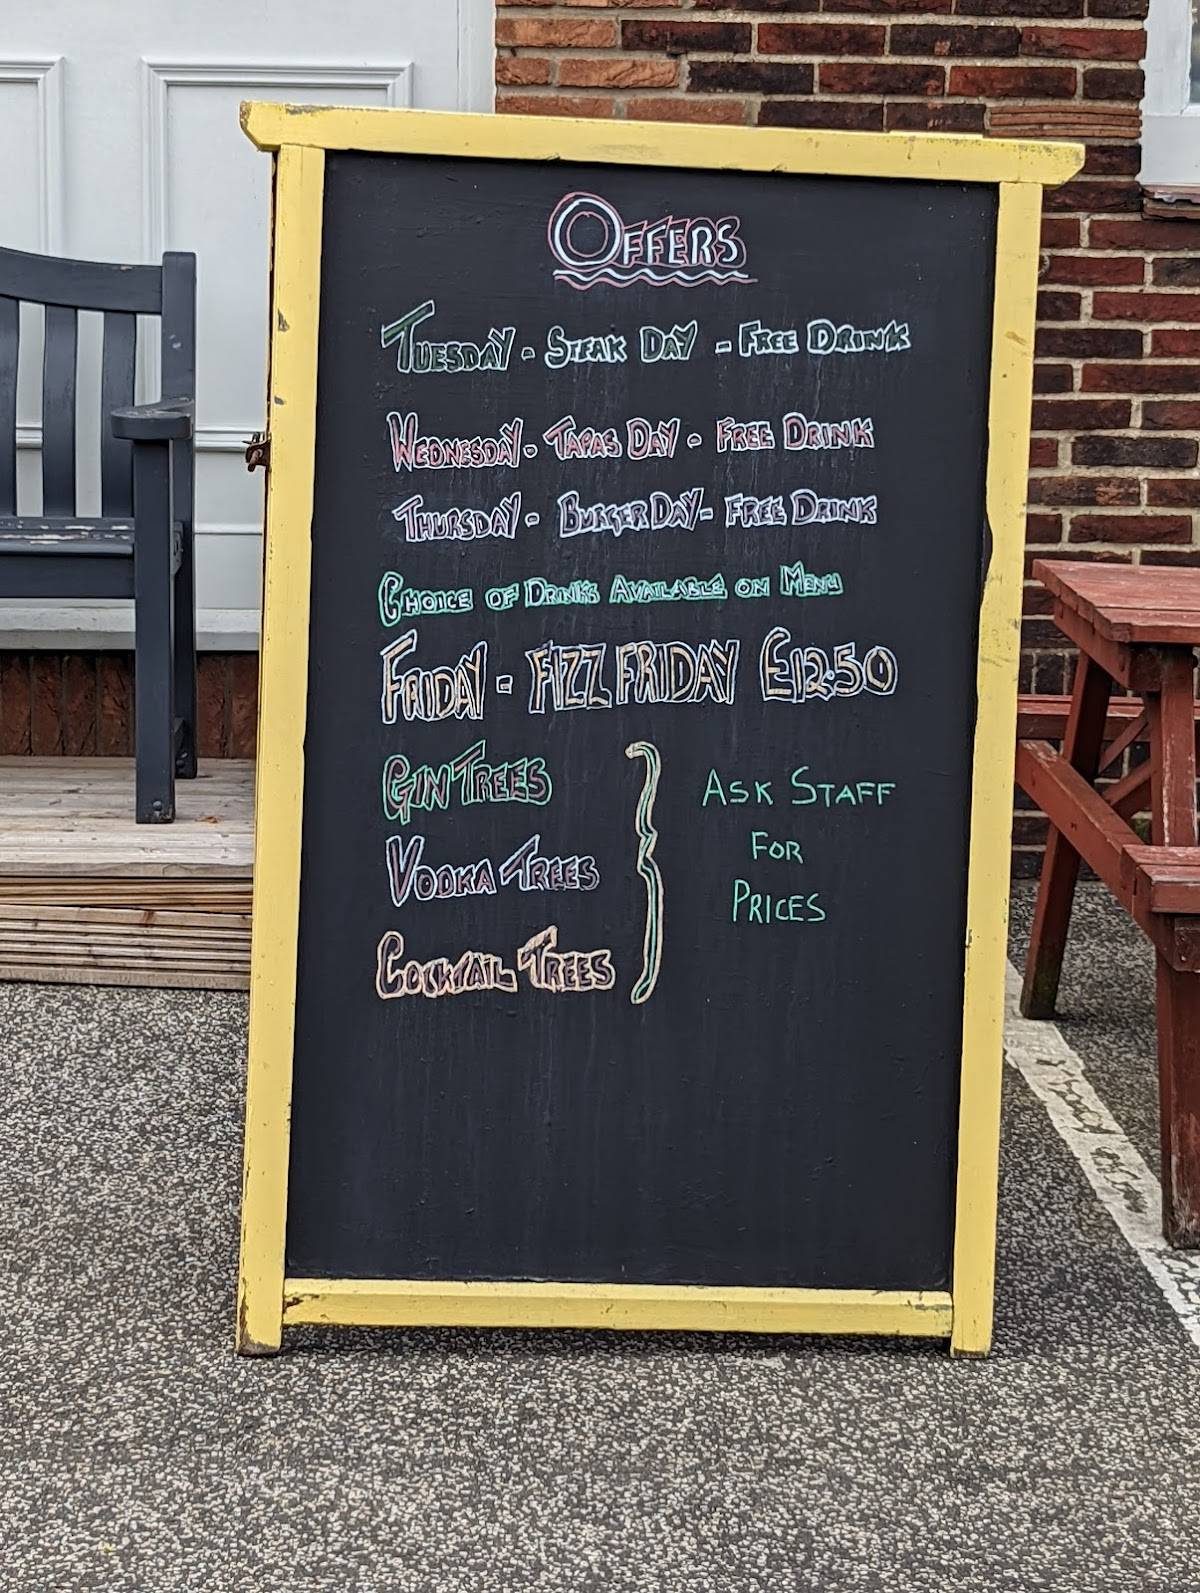 OFFERS
TUESDAY - STEAK DAY - FREE DRINK
WEDNESDAY - TAPAS DAY - FREE DRINK
THURSDAY - BURGER DAY - FREE DRINK
CHOICE OF DRINKS AVAILABLE ON MENU
FRIDAY - FIZZ FRIDAY £12.50
GIN TREES
VODKA TREES
COCKTAIL TREES
ASK STAFF
FOR
PRICES